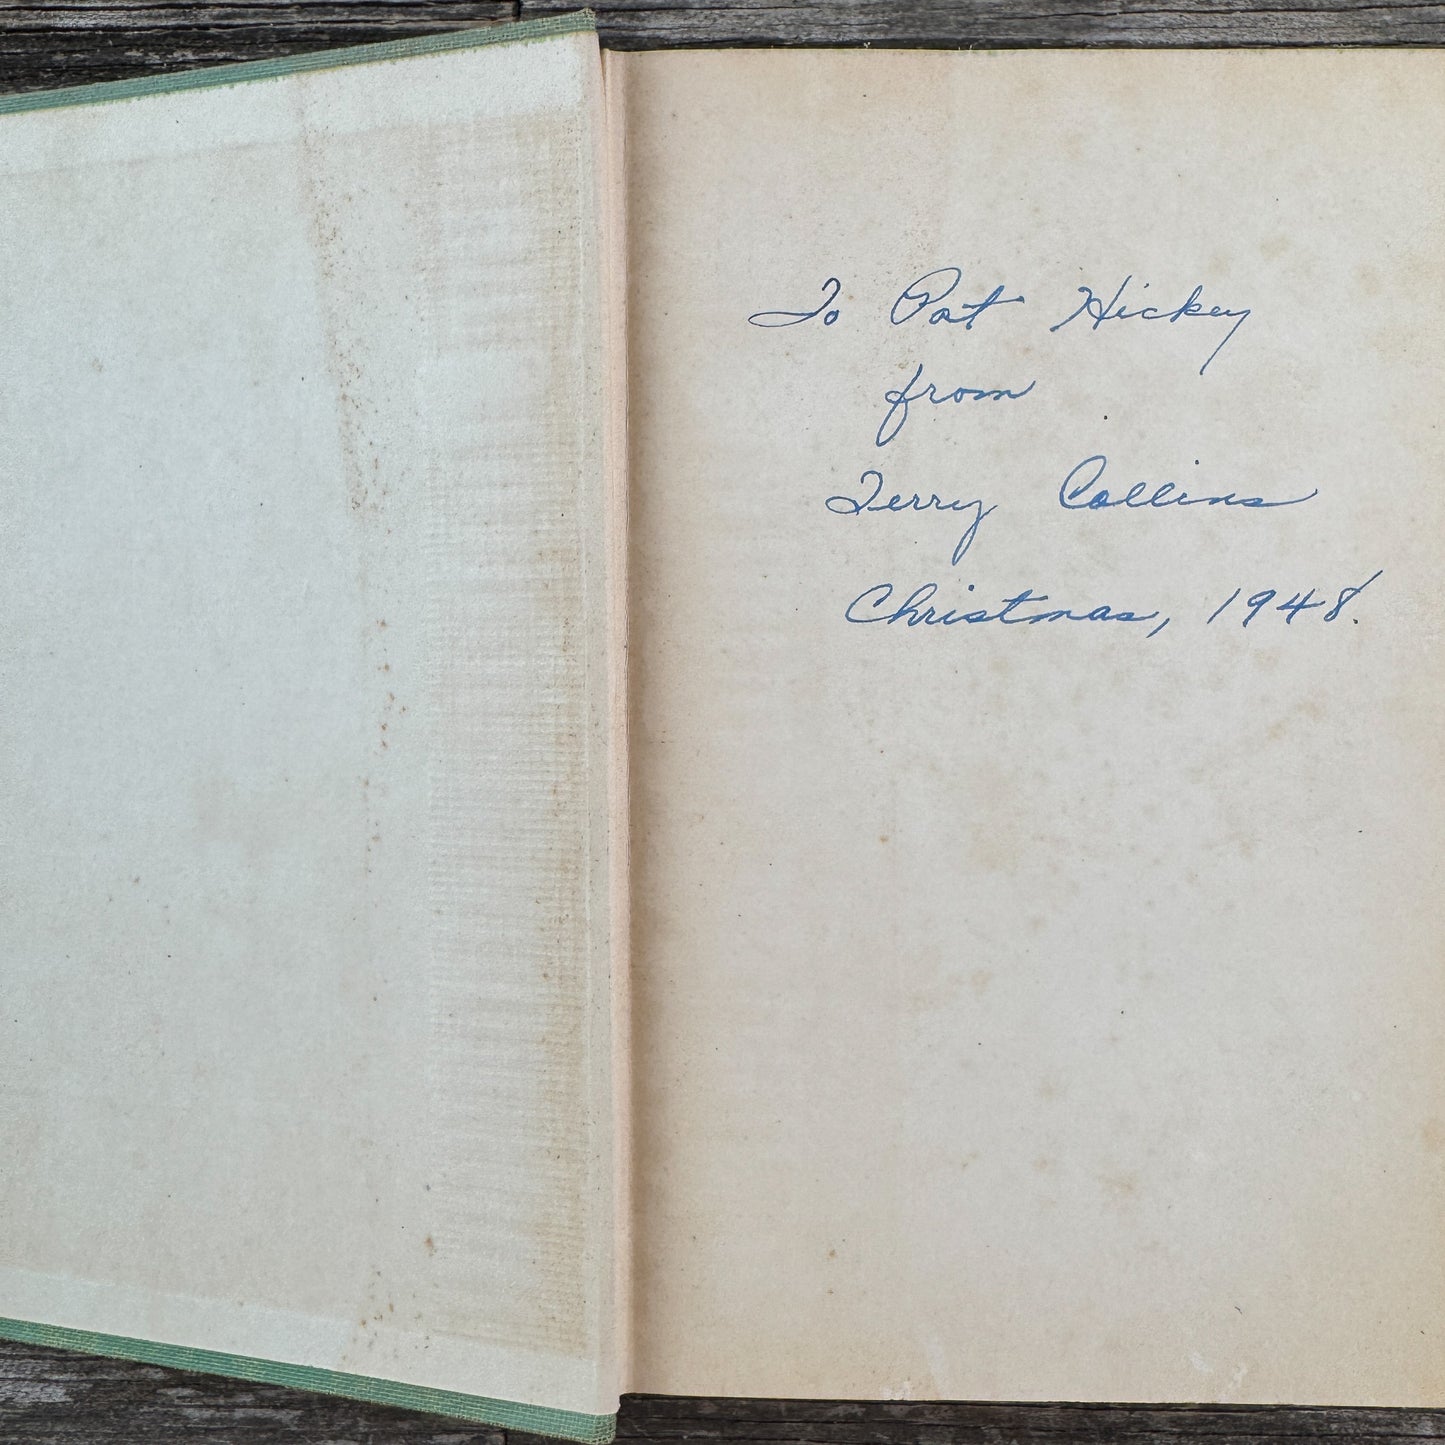 To Pat Hickey
from
Terry Collins
Christmas, 1948.